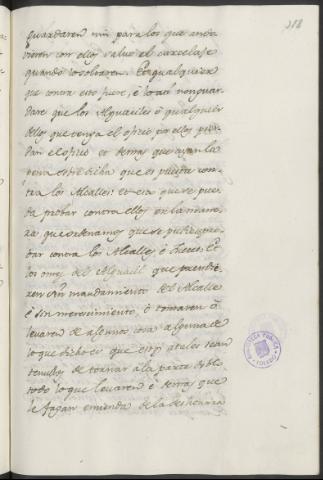 218
guardaren nin para los que anda
vieren con ellos salvo el carcelaje
quando lo soltaren. E qualquier
que contra esto fuere, è lo asi non guar
dare que los Alguaciles è qualquier
dellos que tenga el oficio por ellos pier
dan el oficio et demas que ayan la
pena estredicha que es puesta con
tra los Alcalles: et esto que se pue
da probar contra ellos en la mane
ra que ordenamos que se pudie pro
bar contra los Alcalles è Jueces. E
los omes del Alguacil que prendie
ren sin mandamiento del Alcalle
è sin merescimiento, ò tomaren ò
levaren de algunos cosa alguna de
lo que dicho es que estos atales sean
tenudos de tornar à la parte doblo
todo lo que levaren è demas que
le fagan emienda de la deshonrra
BIBLIOTECA PUBLICA
TOLEDO